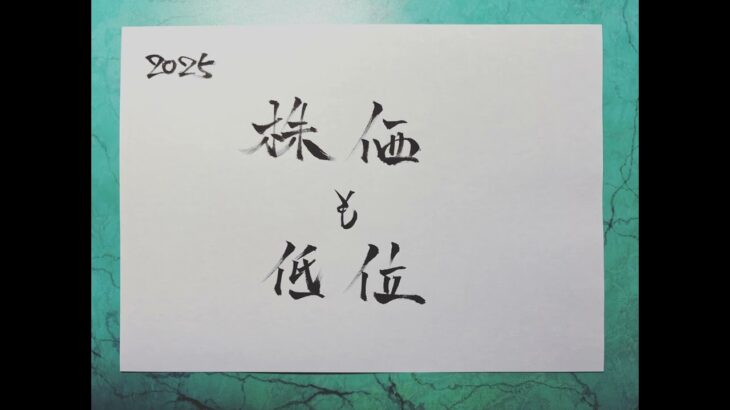 2025
株価
も
低位